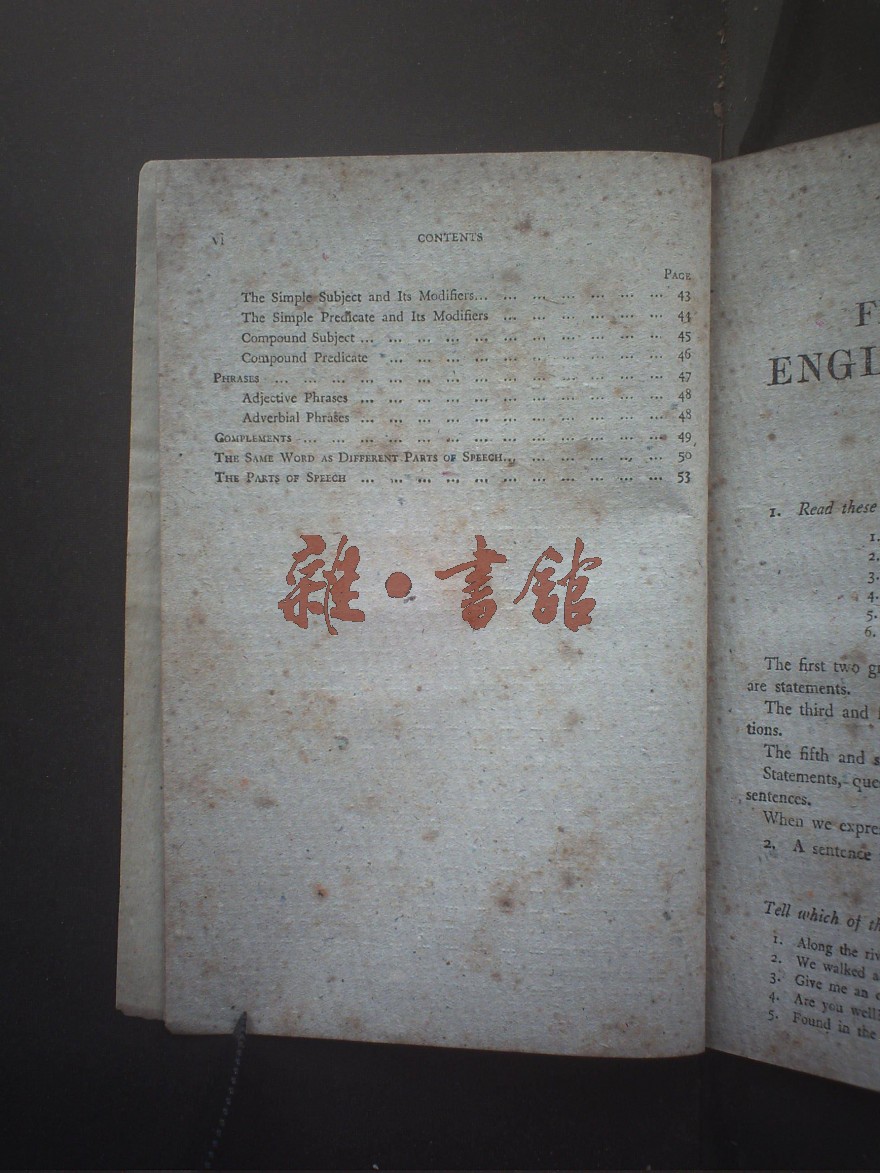 vi
CONTENTS
PAGE
The Simple Subject and Its Modifiers... ... ... ... ... ... ... 43
The Simple Predicate and Its Modifiers ... ... ... ... ... ... 44
Compound Subject ... ... ... ... ... ... ... ... ... ... ... 45
Compound Predicate ... ... ... ... ... ... ... ... ... ... 46
PHRASES ... ... ... ... ... ... ... ... ... ... ... ... ... ... 47
Adjective Phrases ... ... ... ... ... ... ... ... ... ... ... 48
Adverbial Phrases ... ... ... ... ... ... ... ... ... ... ... 48
COMPLEMENTS ... ... ... ... ... ... ... ... ... ... ... ... ... 49
THE SAME WORD AS DIFFERENT PARTS OF SPEECH... ... ... ... ... ... 50
THE PARTS OF SPEECH ... ... ... ... ... ... ... ... ... ... ... 53
雜·書館
1. Read these
1.
2.
3.
4.
5.
6.
The first two
are statements.
The third and
tions.
The fifth and
Statements,
sentences.
When we
2. A sentence
Tell which of
1. Along the
2. We walked
3. Give me an
4. Are you
5. Found in the